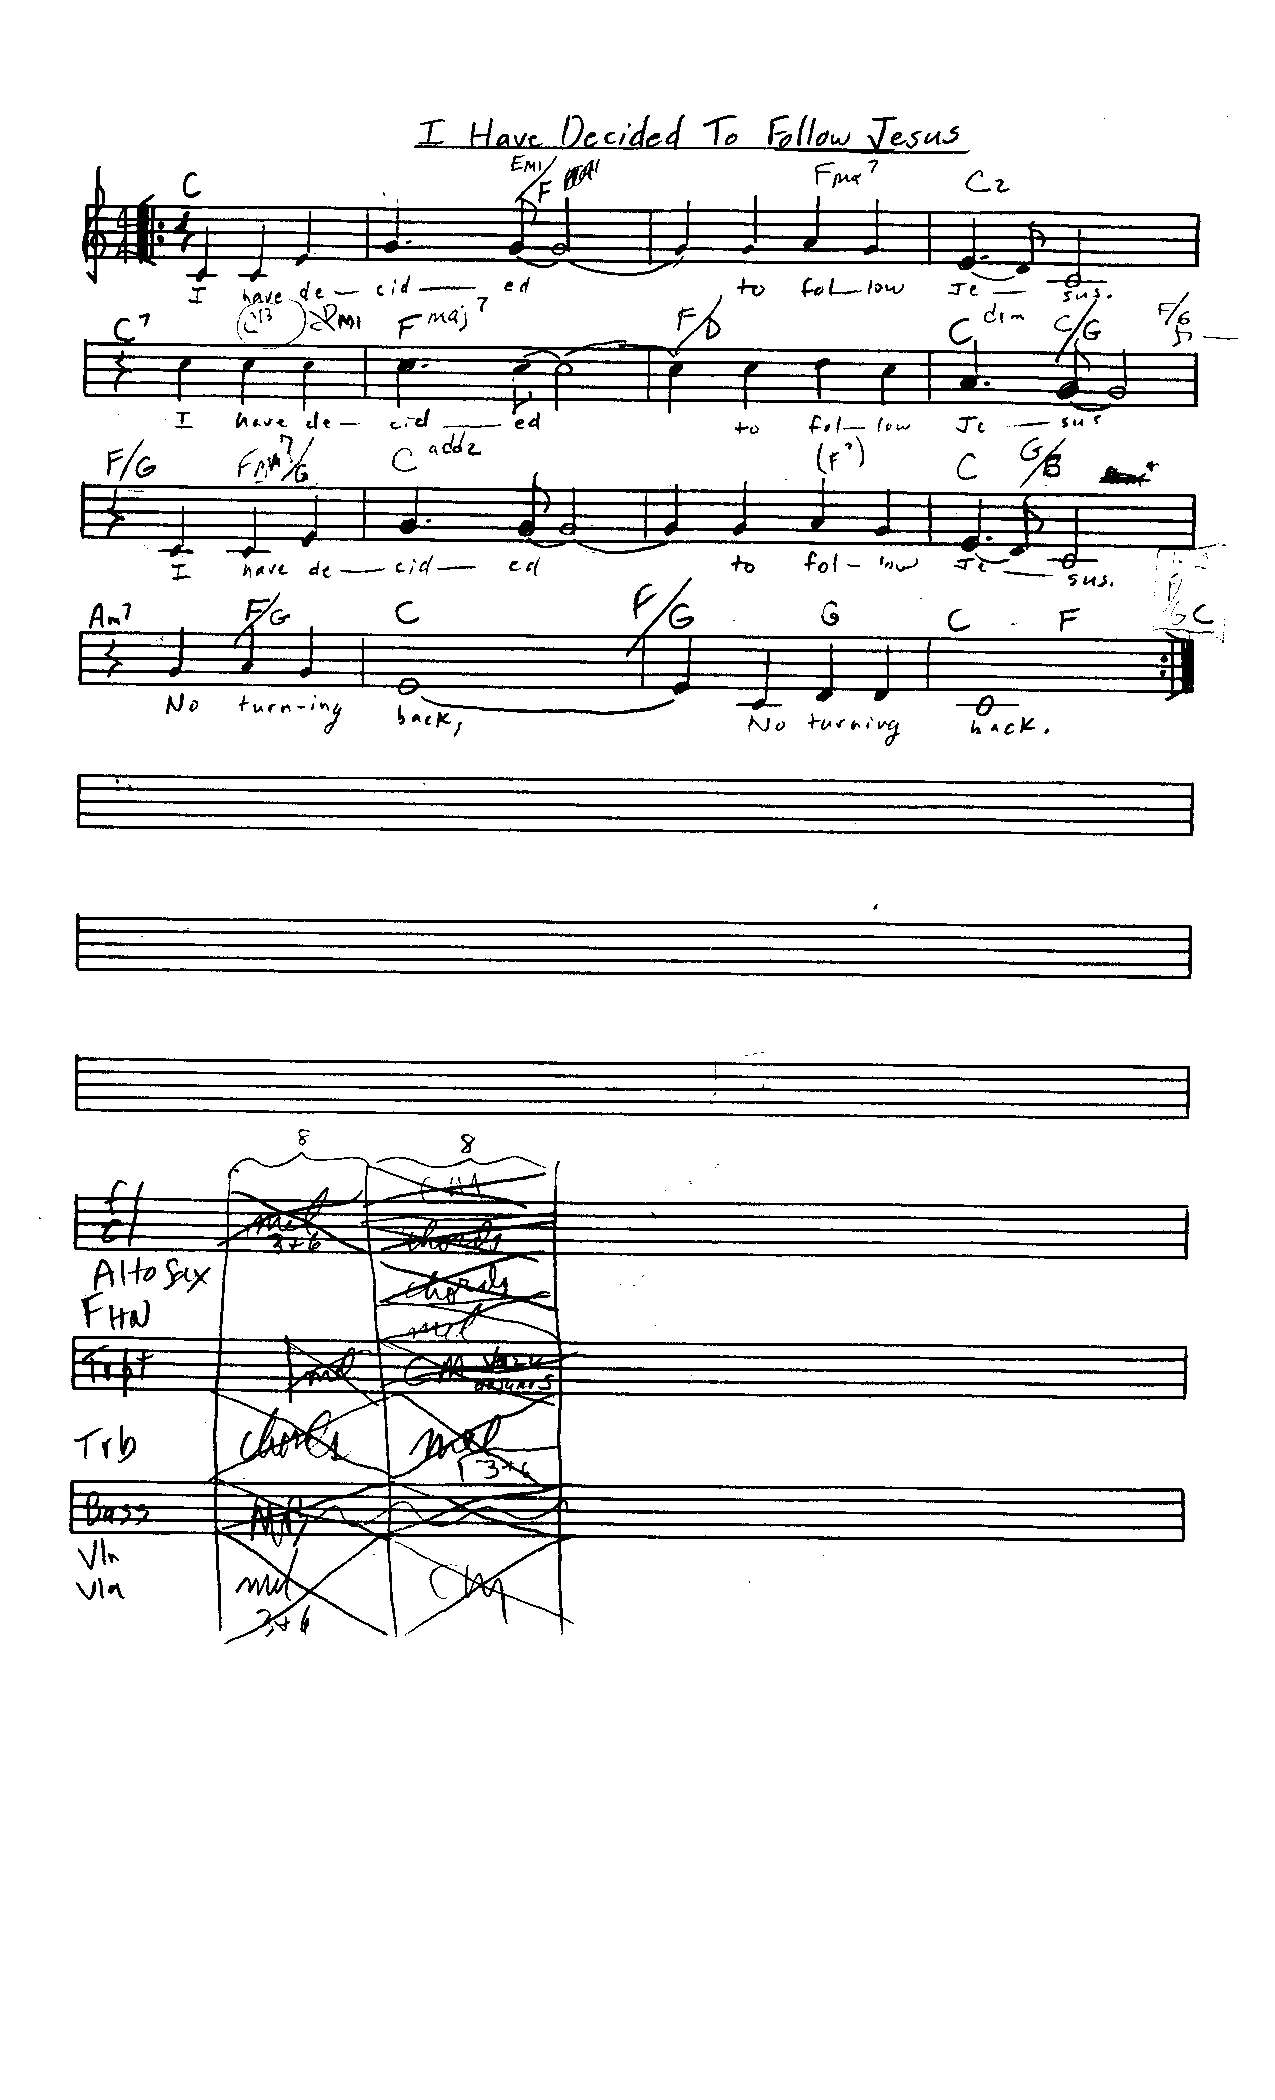 I Have Decided To Follow Jesus
C Emi/F Fma7 C2
I have de-cid-ed to fol-low Je-sus.
C7 C13 Dmi Fmaj7 F/D C dim C/G F/G
I have de-cid-ed to fol-low Je-sus
F/G Fma7/G C add2 (F7) C G/B
I have de-cid-ed to fol-low Je-sus.
Am7 F/G C F/G G C F G C
No turn-ing back, No turning back.
8 8
f/
C/ mel chords
3+6
Alto Sax chords
FHN mel
Trpt mel CM
Trb chords mel
3+6
Bass
Vln
Vla mel CM
3+6